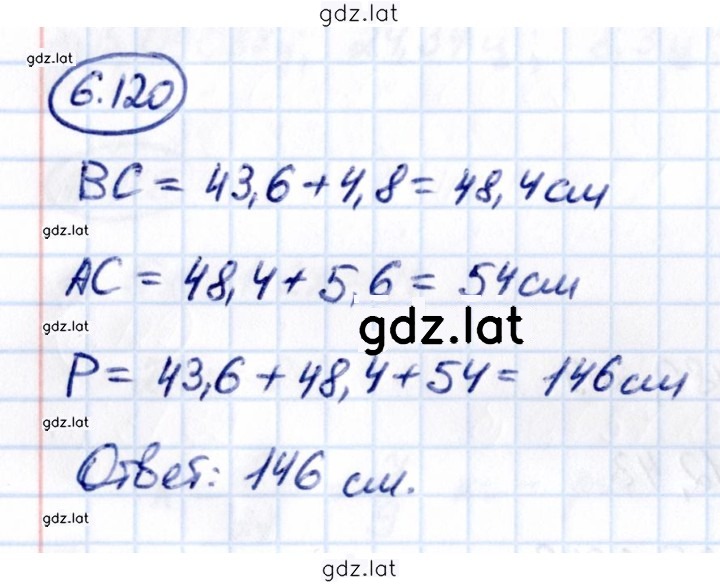 gdz.lat
gdz.lat
6.120
BC = 43,6 + 4,8 = 48,4 см
gdz.lat
AC = 48,4 + 5,6 = 54 см
gdz.lat
gdz.lat
P = 43,6 + 48,4 + 54 = 146 см
gdz.lat
Ответ: 146 см.
gdz.lat
gdz.lat